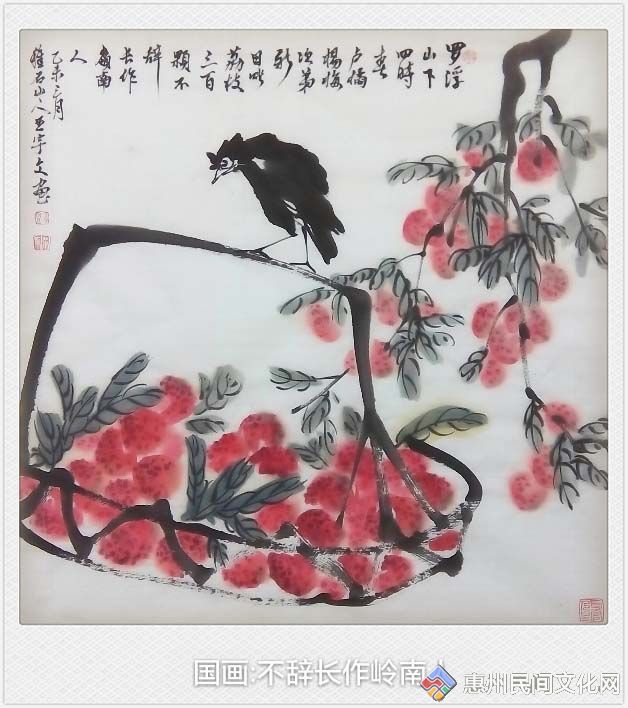 罗浮
山下
四时
春
卢橘
楊梅
次第
新
日啖
荔枝
三百
颗不
辞
长作
嶺南
人
乙未三月
石山人王宇文画
国画:不辞长作岭南人
惠州民间文化网